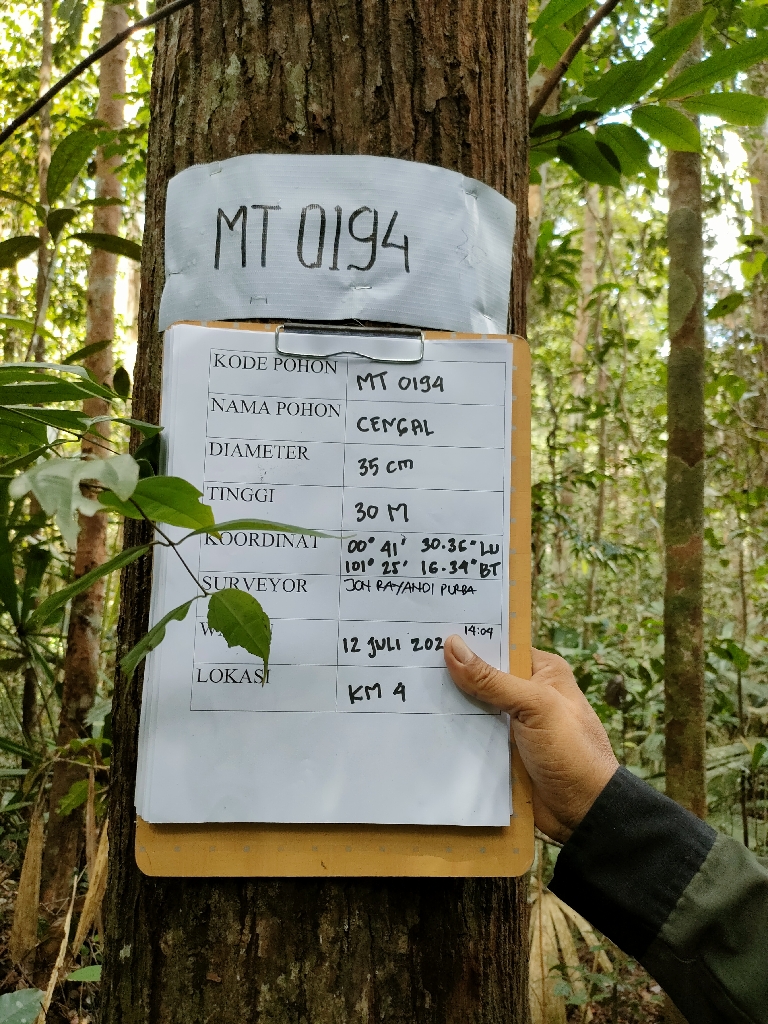 MT 0194
KODE POHON MT 0194
NAMA POHON CENGAL
DIAMETER 35 cm
TINGGI 30 M
KOORDINAT 00° 41' 30.36" LU
101° 25' 16.34" BT
SURVEYOR JON RAYANDI PURBA
14:04
12 JULI
LOKASI KM 4